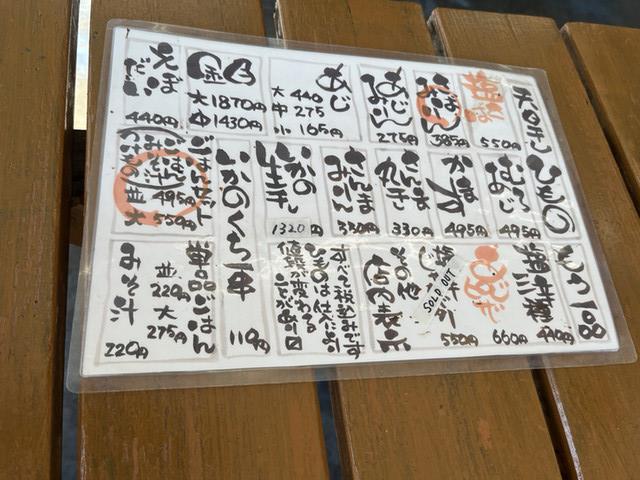 天日干し
ひもの
550円
さばみりん
385円
あじみりん
275円
あじ
大 440
中 275
小 165円
金目
大 1870円
中 1430円
えぼだい
440円
むろあじ
495円
かます
495円
さんま丸干し
330円
さんまみりん
330円
いかの生干し
1320円
いかのくち串
110円
ごはんセット
(ごはん・みそ汁)
並 495円
大 550円
660円
SOLD OUT
550円
その他
店内表示
すべて税込みです
ひものは仕入により
値段が変わる
ことが有り〼
単品ごはん
並 220円
大 275円
みそ汁
220円